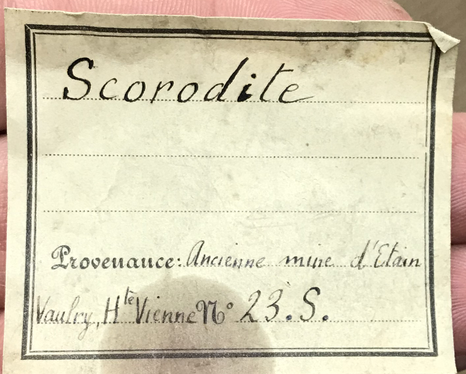 Scorodite
Provenance: Ancienne mine d'Etain
Vaulry, Hte Vienne No 23.S.